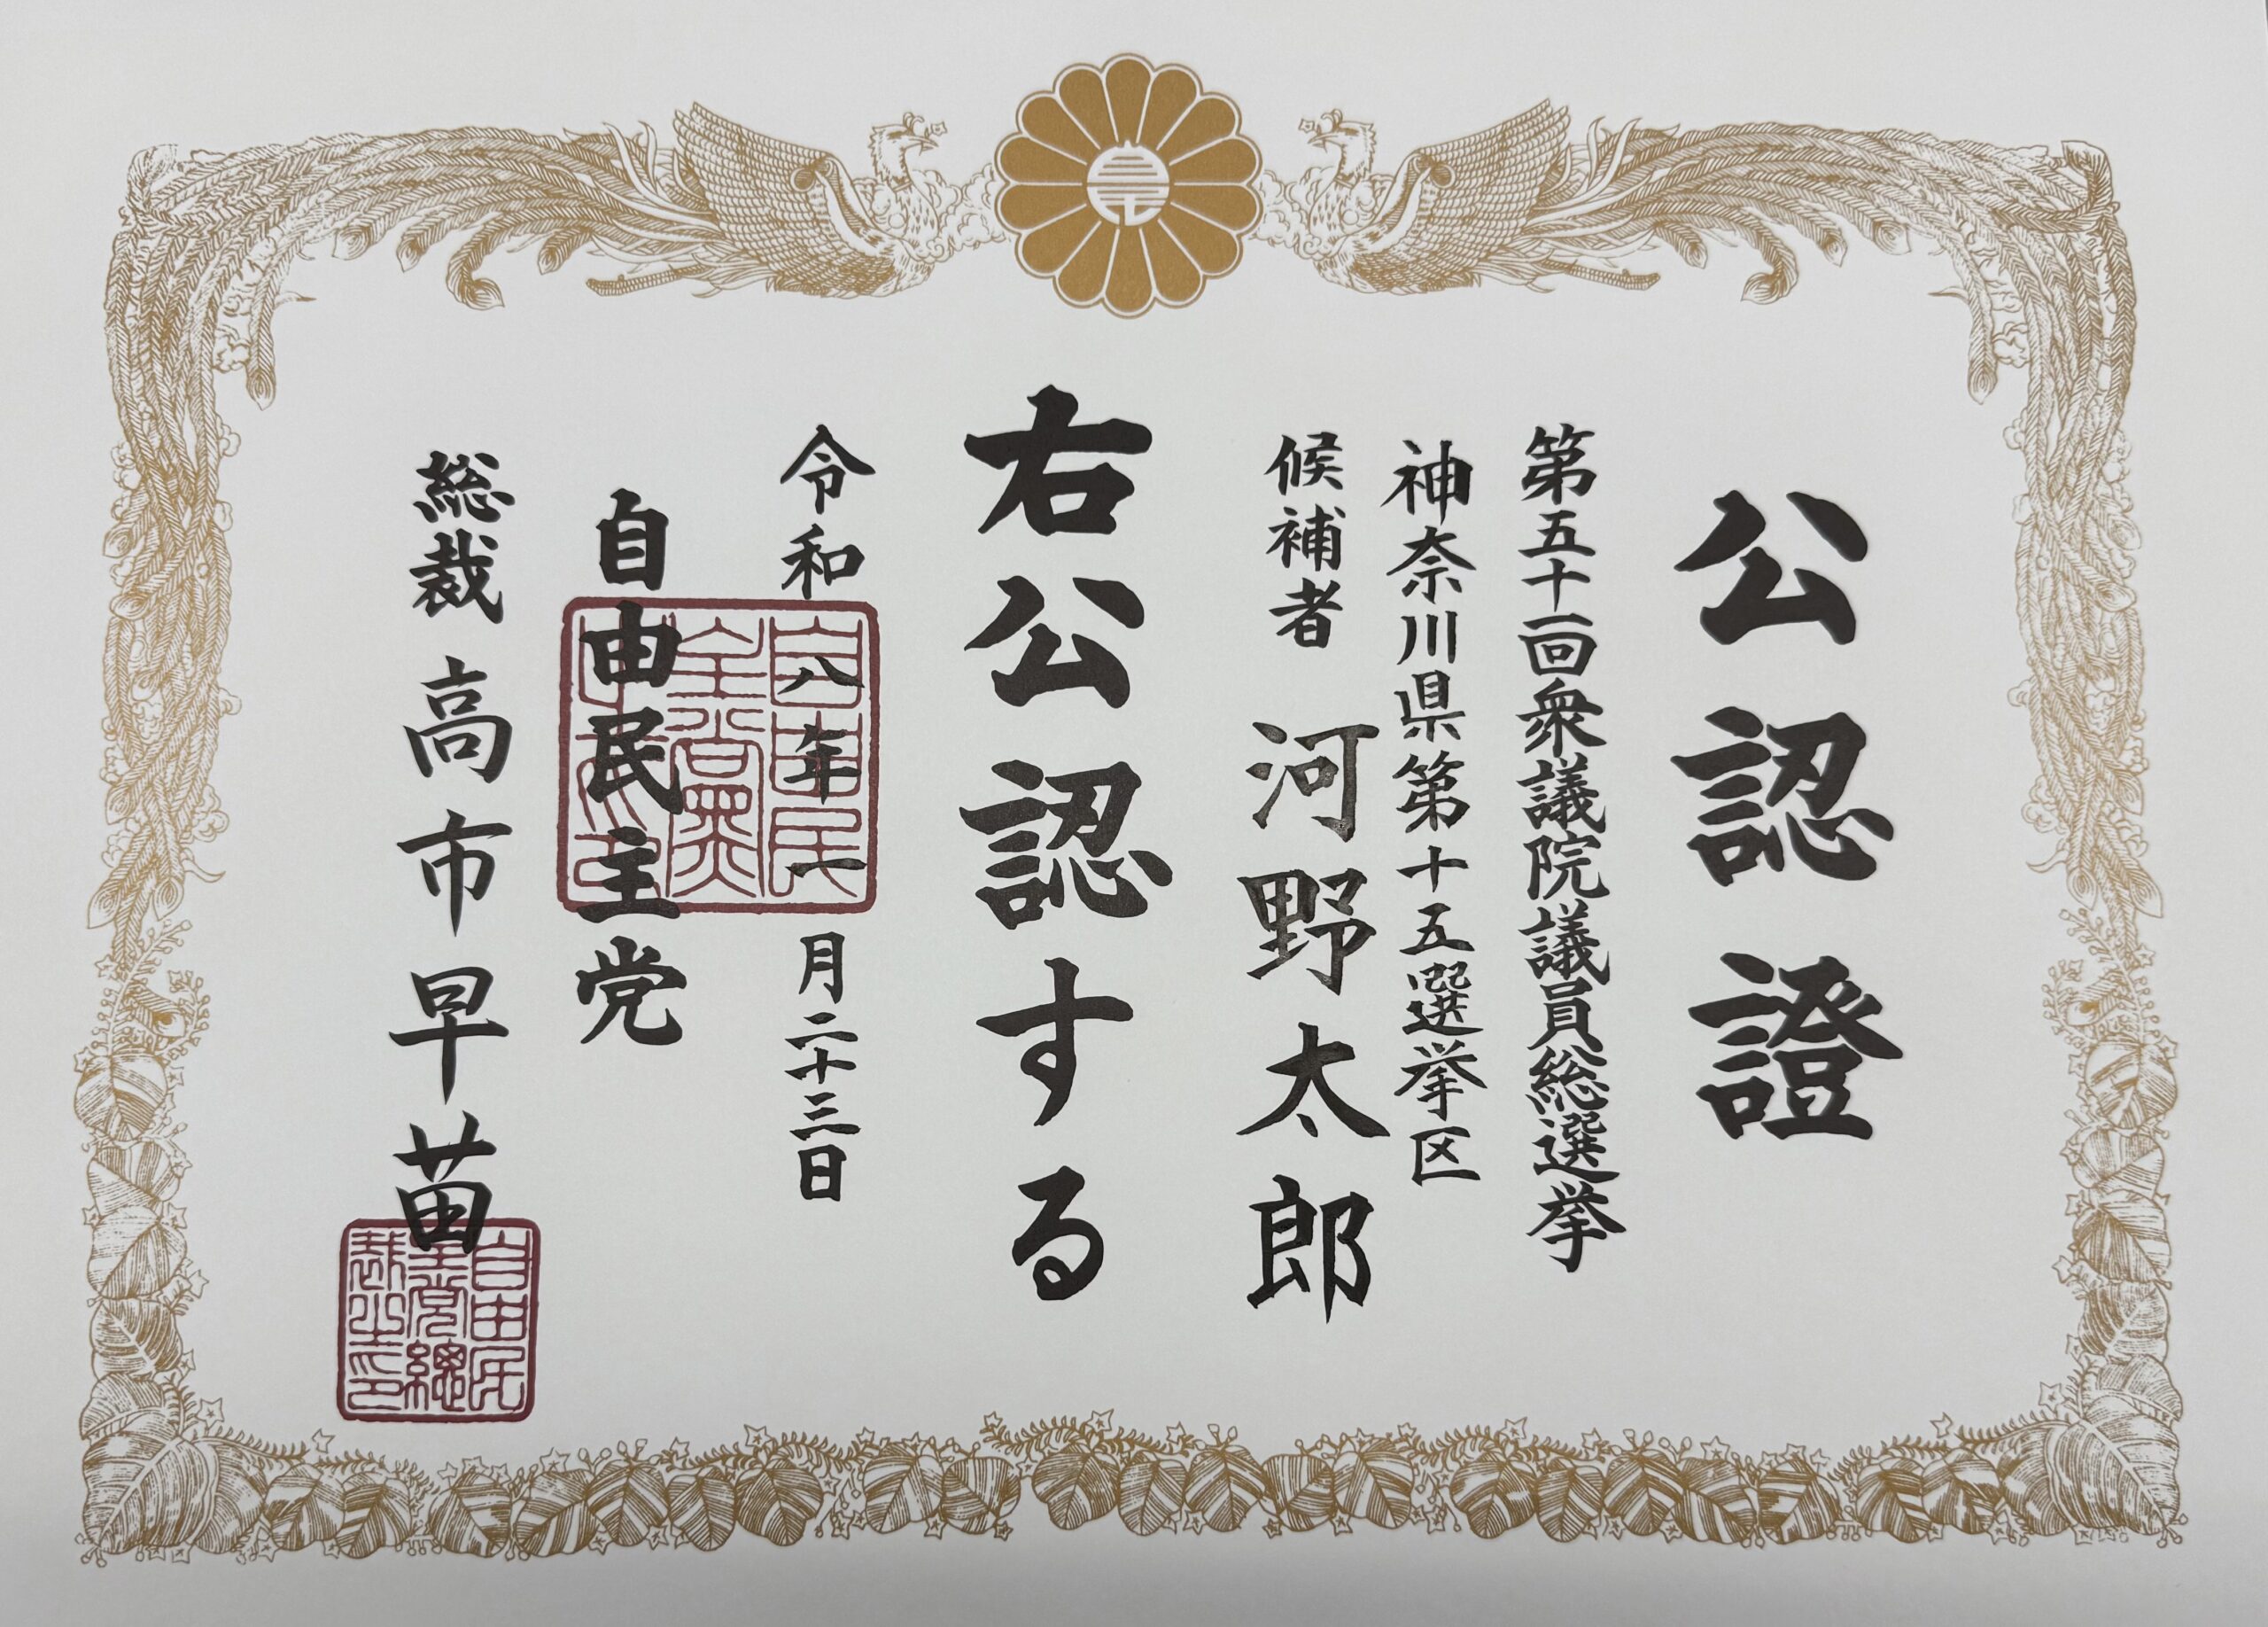 公認證
第五十一回衆議院議員総選挙
神奈川県第十五選挙区
候補者 河野太郎
右公認する
令和八年一月二十三日
自由民主党
総裁 高市早苗
自由民
主党總
裁之印